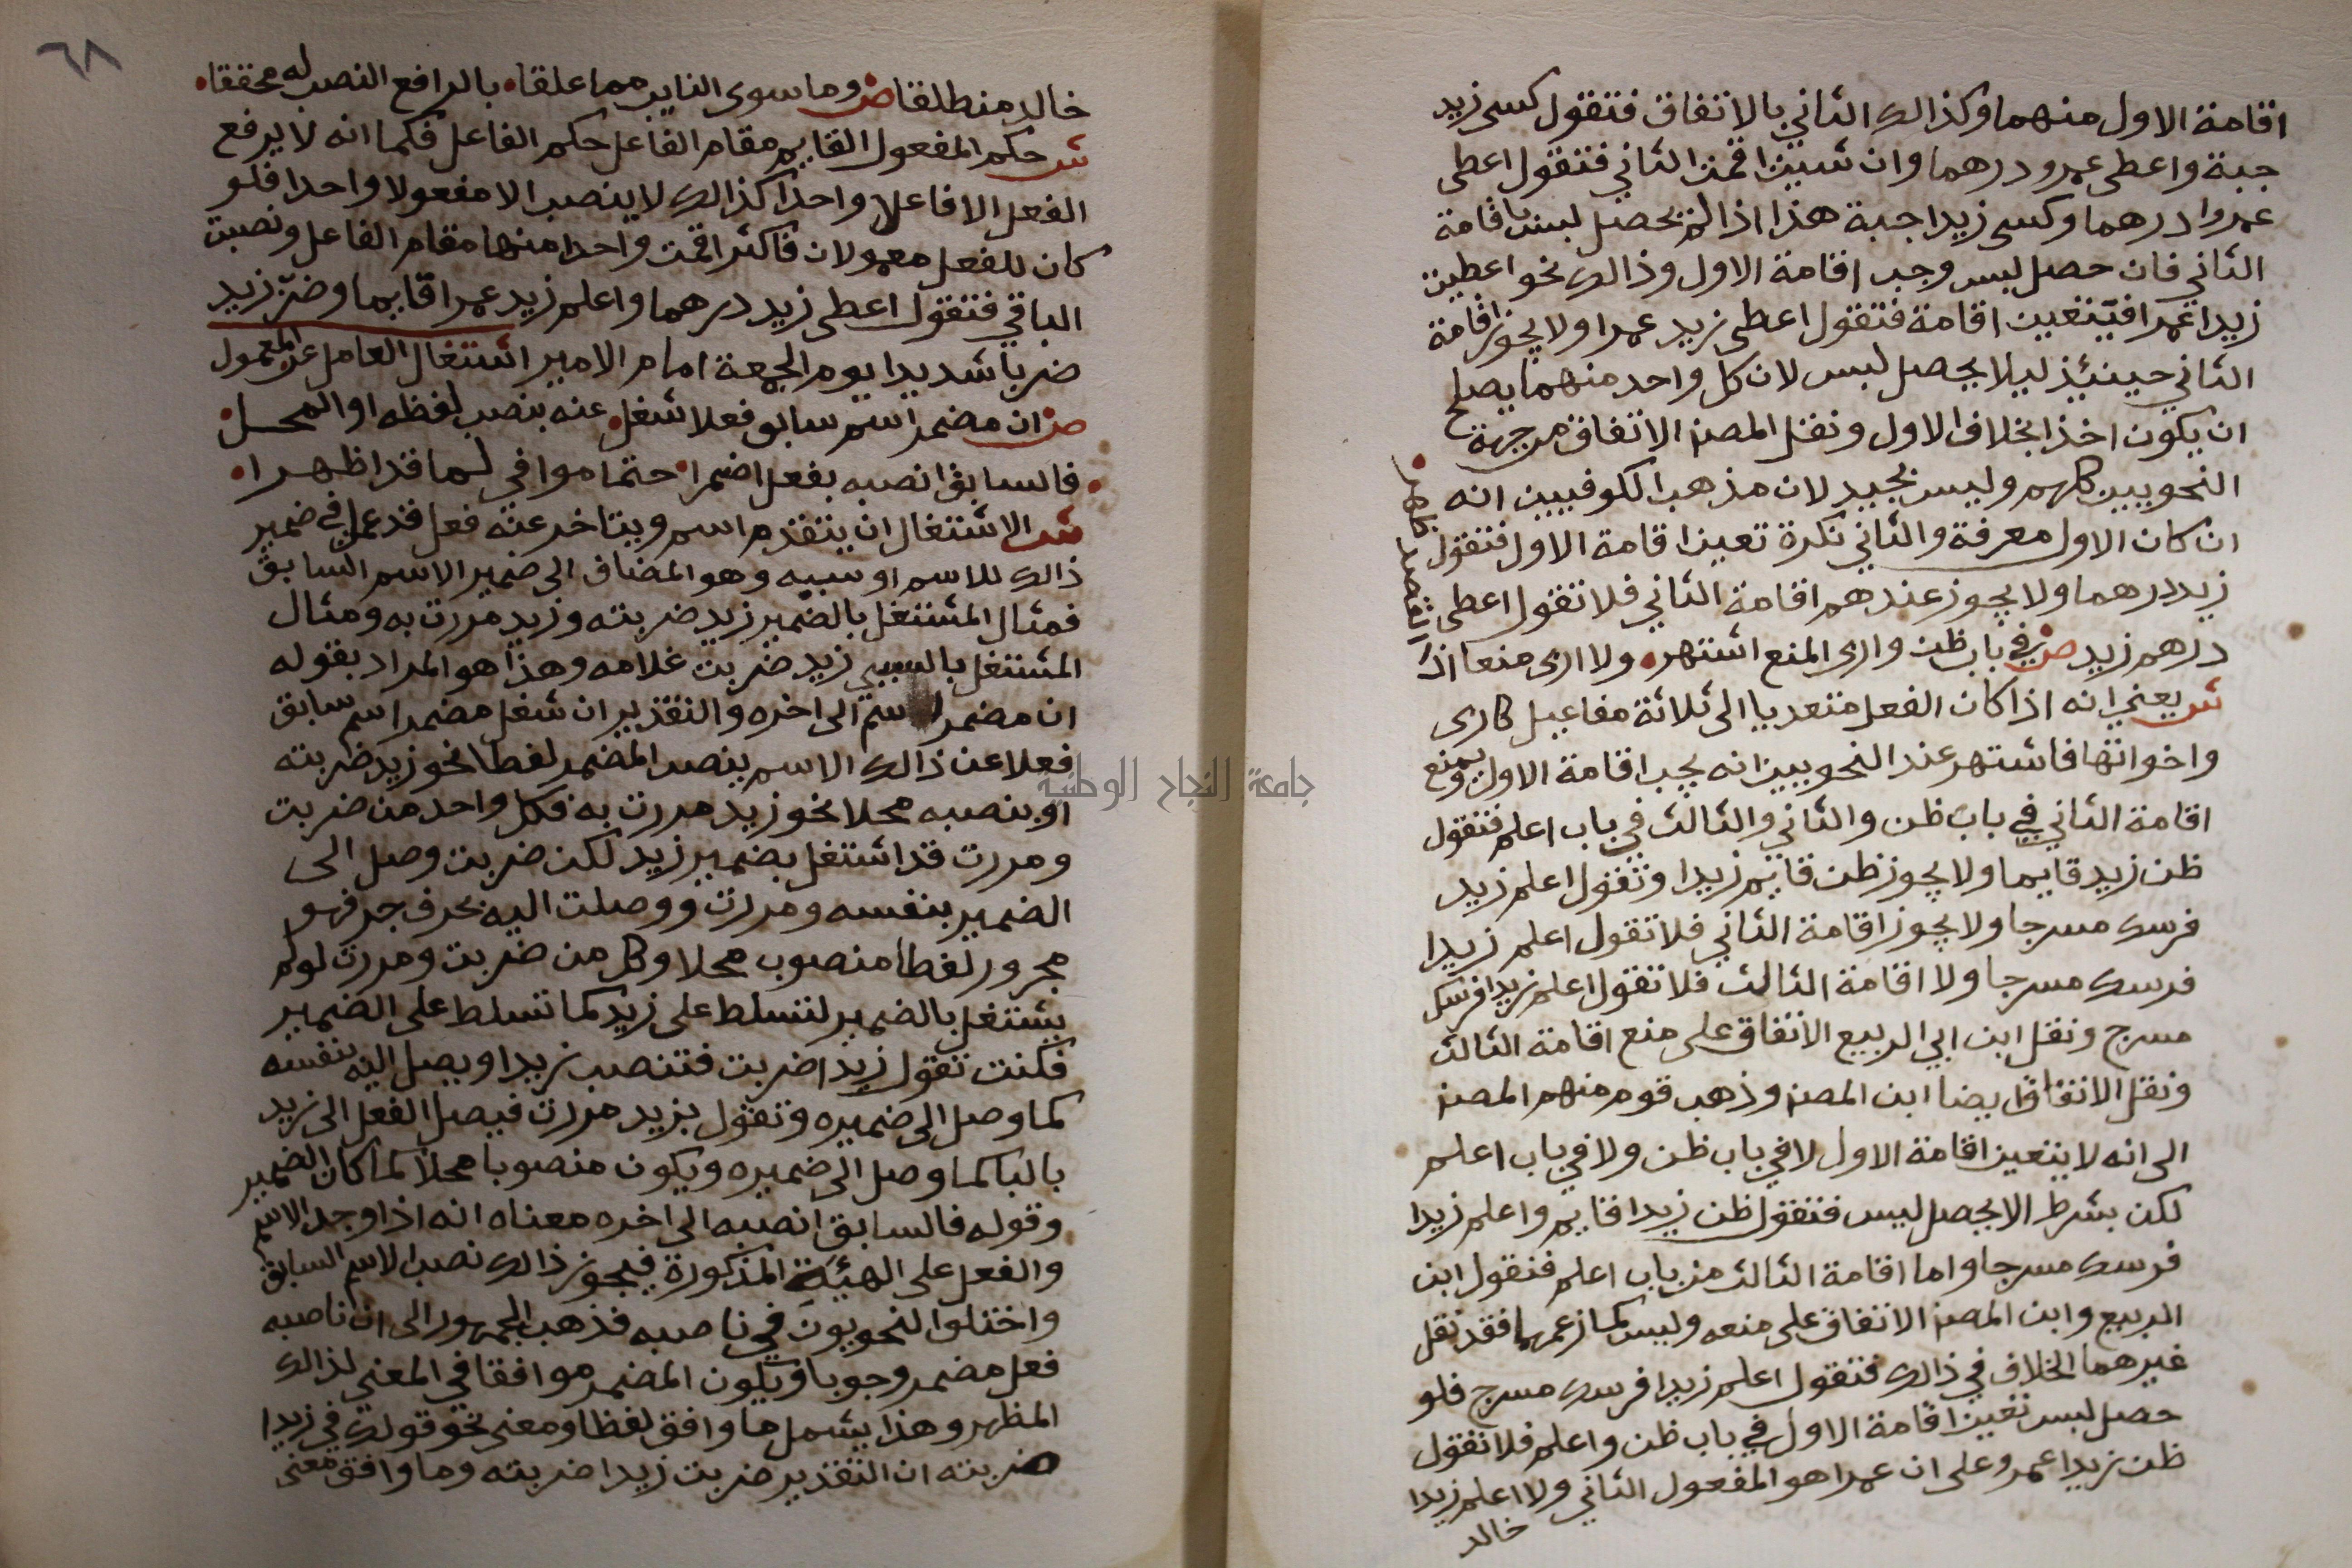 اقامة الاول منهما وكذالك الثاني بالاتفاق فتقول كسى زيد
جبة واعطى عمرو درهما وان شيت اقمت الثاني فتقول اعطى
عمروا درهم وكسى زيدا جبة هذا اذا لم يحصل لبس باقامة
الثاني فان حصل لبس وجب اقامة الاول وذالك نحو اعطيت
زيدا عمرا فيتعين اقامة فتقول اعطى زيد عمرا ولا يجوز اقامة
الثاني حينيئذ ليلا يحصل لبس لان كل واحد منهما يصلح
ان يكون اخذا بخلاف الاول ونقل المص الاتفاق من جهة
النحويين كلهم وليس بجيد لان مذهب الكوفيين انه
ان كان الاول معرفة والثاني نكرة تعين اقامة الاول فتقول
زيد درهما ولا يجوز عندهم اقامة الثاني فلا تقول اعطى
درهم زيد ص في باب ظن وارى المنع اشتهر ولا ارى منعا اذا
القصد ظهر
ش يعني انه اذا كان الفعل متعديا الى ثلاثة مفاعيل كارى
واخواتها فاشتهر عند النحويين انه يجب اقامة الاول ويمنع
اقامة الثاني في باب ظن والثاني والثالث في باب اعلم فتقول
ظن زيد قايما ولا يجوز ظن قايم زيدا وتقول اعلم زيد
فرسك مسرجا ولا يجوز اقامة الثاني فلا تقول اعلم زيدا
فرسك مسرجا ولا اقامة الثالث فلا تقول اعلم زيدا فرسك
مسرج ونقل ابن ابي الربيع الاتفاق على منع اقامة الثالث
ونقل الاتفاق ايضا ابن المص وذهب قوم منهم المص
الى انه لا يتعين اقامة الاول لا في باب ظن ولا في باب اعلم
لكن بشرط الا يحصل لبس فتقول ظن زيدا قايم واعلم زيدا
فرسك مسرجا واما اقامة الثالث من باب اعلم فنقول ابن
الربيع وابن المص الاتفاق على منعه وليس كما زعمها فقد نقل
غيرهما الخلاف في ذالك فتقول اعلم زيدا فرسك مسرج فلو
حصل لبس تعين اقامة الاول في باب ظن واعلم فلا تقول
ظن زيدا عمرو على ان عمرا هو المفعول الثاني ولا اعلم زيدا
خالد
٦٨
خالد منطلقا ص وما سوى النايب مما علقا بالرافع النصب له محققا
ش حكم المفعول القايم مقام الفاعل حكم الفاعل فكما انه لا يرفع
الفعل الا فاعلا واحدا كذالك لا ينصب الا مفعولا واحدا فلو
كان للفعل معمولان فاكثر اقمت واحدا منها مقام الفاعل ونصبت
الباقي فتقول اعطى زيد درهما واعلم زيد عمرا قايما وضرب زيد
ضربا شديدا يوم الجمعة امام الامير اشتغال العامل عن المعمول
ص ان مضمر اسم سابق فعلا شغل عنه بنصب لفظه او المحل
فالسابق انصبه بفعل اضمرا حتما موافي لما قد اظهرا
ش الاشتغال ان يتقدم اسم ويتاخر عنه فعل قد عمل في ضمير
ذالك للاسم او سببيه وهو المضاف الى ضمير الاسم السابق
فمثال المشتغل بالضمير زيد ضربته وزيد مررت به ومثال
المشتغل بالسببي زيد ضربت غلامه وهذا هو المراد بقوله
ان مضمر اسم الى اخره والتقدير ان شغل مضمر اسم سابق
فعلا عن ذالك الاسم بنصب المضمر لفظا نحو زيد ضربته
او بنصبه محلا نحو زيد مررت به فكل واحد من ضربت
ومررت قد اشتغل بضمير زيد لكن ضربت وصل الى
الضمير بنفسه ومررت ووصلت اليه بحرف جر فهو
مجرور لفظا منصوب محلا وكل من ضربت ومررت لو لم
يشتغل بالضمير لتسلط على زيد كما تسلط على الضمير
فكنت تقول زيدا ضربت فتنصب زيدا ويصل اليه بنفسه
كما وصل الى ضميره وتقول بزيد مررت فيصل الفعل الى زيد
بالبا كما وصل الى ضميره ويكون منصوبا محلا كما كان الضمير
وقوله فالسابق انصبه الى اخره معناه انه اذا وجد الاسم
والفعل على الهيئة المذكورة فيجوز ذالك نصب الاسم السابق
واختلوا لنحويون في ناصبه فذهب الجمهور الى ان ناصبه
فعل مضمر وجوبا ويكون المضمر موافقا في المعنى لذالك
المظهر وهذا يشمل ما وافق لفظا ومعنى نحو قولك في زيدا
ضربته ان التقدير ضربت زيدا ضربته وما وافق معنى
جامعة النجاح الوطنية